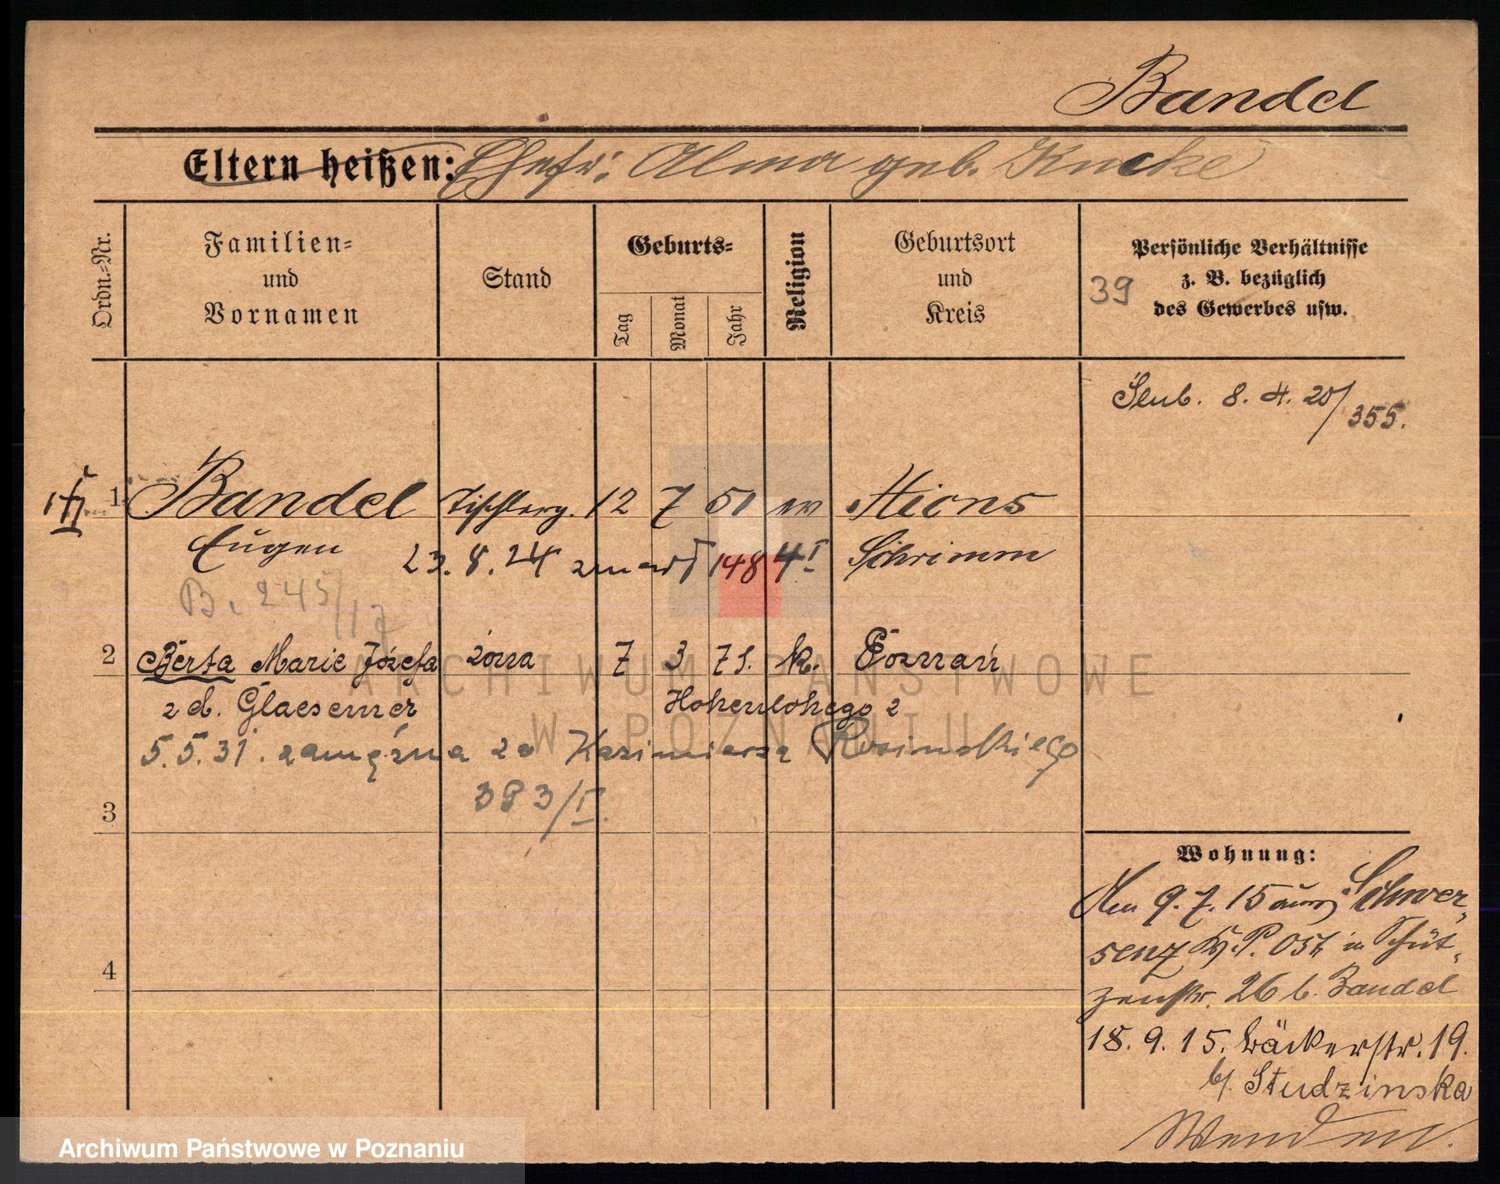 Bandel
Eltern heißen: Ehefr: Alma geb. Kucke
Ordn.=Nr.
Familien=
und
Vornamen
Stand
Geburts=
Tag
Monat
Jahr
Religion
Geburtsort
und
Kreis
Persönliche Verhältnisse
z. B. bezüglich
des Gewerbes usw.
39
Ślub. 8. 4. 20/355.
1 Bandel Tischlerg. 12 7 51 ev
Eugen Schrimm
23. 8. 24 zmarł 148 4 I
B. 245/17
2 Berta Marie Józefa żona 7 3 71. k. Poznań
z d. Glaesemer Hohenlohego 2
5. 5. 31. zamężna za Kazimierza Rosińskiego
393/I.
3
4
Wohnung:
Am 9. 7. 15 aus Schwer-
senz Kr. P. Ost in Schüt-
zenstr. 26 b. Bandel
18. 9. 15. Bäckerstr. 19.
b/. Studzinska
ARCHIWUM PAŃSTWOWE
W POZNANIU
Archiwum Państwowe w Poznaniu